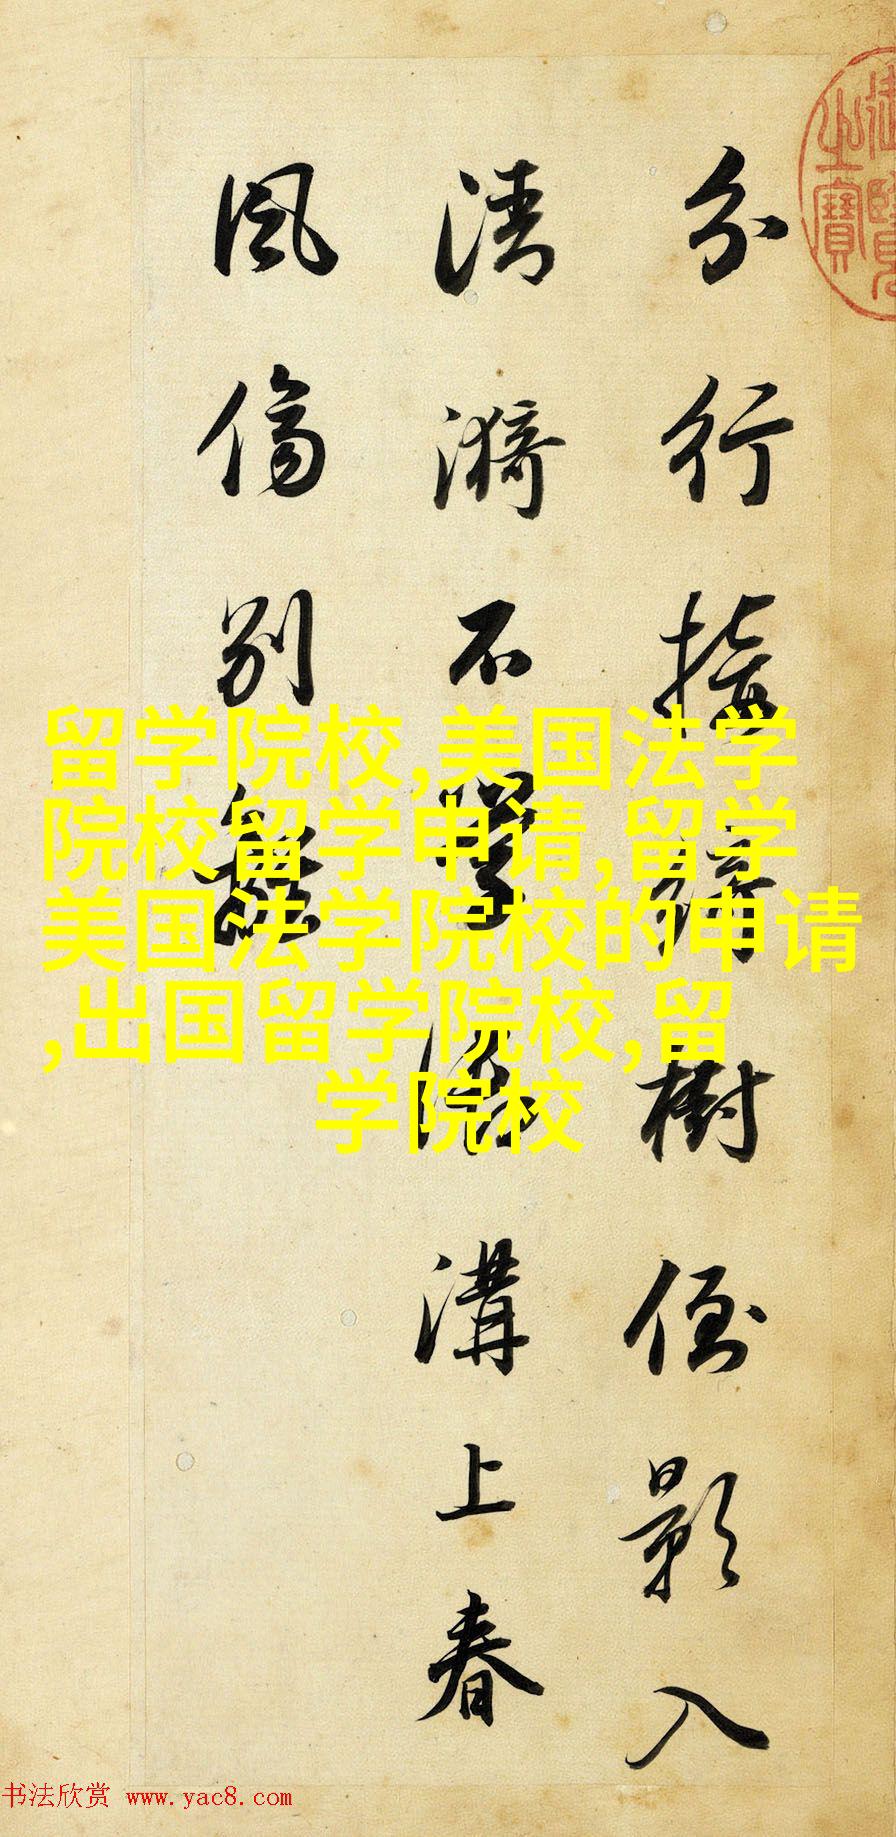 分行接绮樹倒影入
清漪不學御溝上春
風傷別離
留学院校,美国法学
院校留学申请,留学
美国法学院校的申请
,出国留学院校,留
学院校
之寶
书法欣赏 www.yac8.com